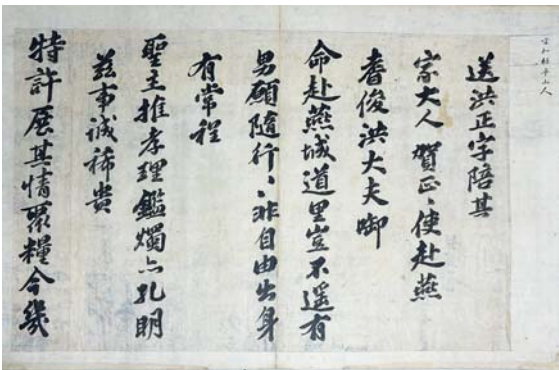 送洪正字陪其
家大人 賀正〻使赴燕
耆俊洪大夫啣
命赴燕城道里豈不遥有
男願隨行〻非自由出身
有常程
聖主推孝理鑑燭亦孔明
茲事誠稀貴
特許展其情聚糧今幾